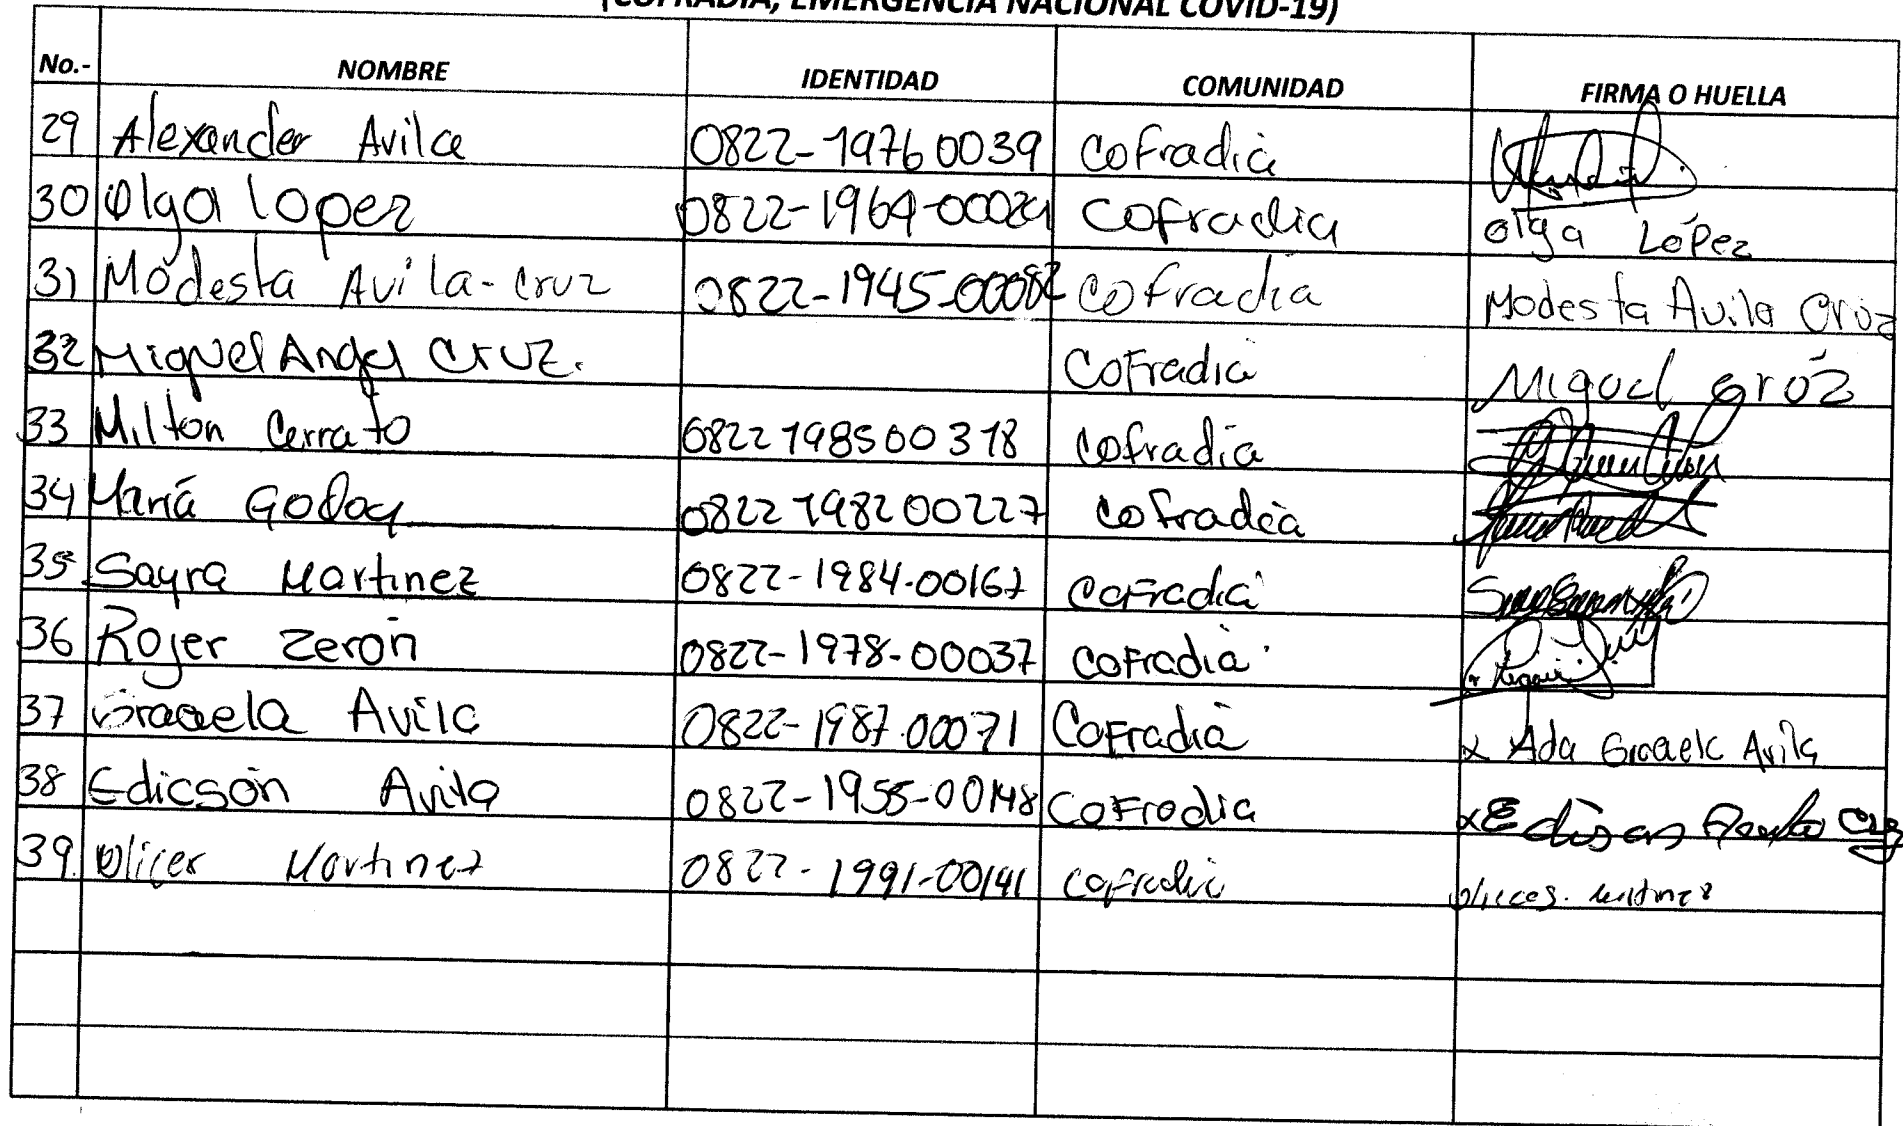 (COFRADIA, EMERGENCIA NACIONAL COVID-19)
No.- NOMBRE IDENTIDAD COMUNIDAD FIRMA O HUELLA
29 Alexander Avila 0822-1976 0039 Cofradia
30 Olga Lopez 0822-1964-00029 Cofradia Olga López
31 Modesta Avila-Cruz 0822-1945-00082 Cofradia Modesta Avila Cruz
32 Miguel Angel Cruz. Cofradia Miguel Cruz
33 Milton Cerrato 0822198500318 Cofradia
34 María Godoy 0822198200227 Cofradia
35 Sayra Martinez 0822-1984-00167 Cofradia
36 Rojer Zeron 0822-1978-00037 Cofradia
37 Graciela Avila 0822-1987.00071 Cofradia x Ada Graciela Avila
38 Edicson Avila 0822-1955-00148 Cofradia x
39. Martinez 0822-1991-00141 Cofradia